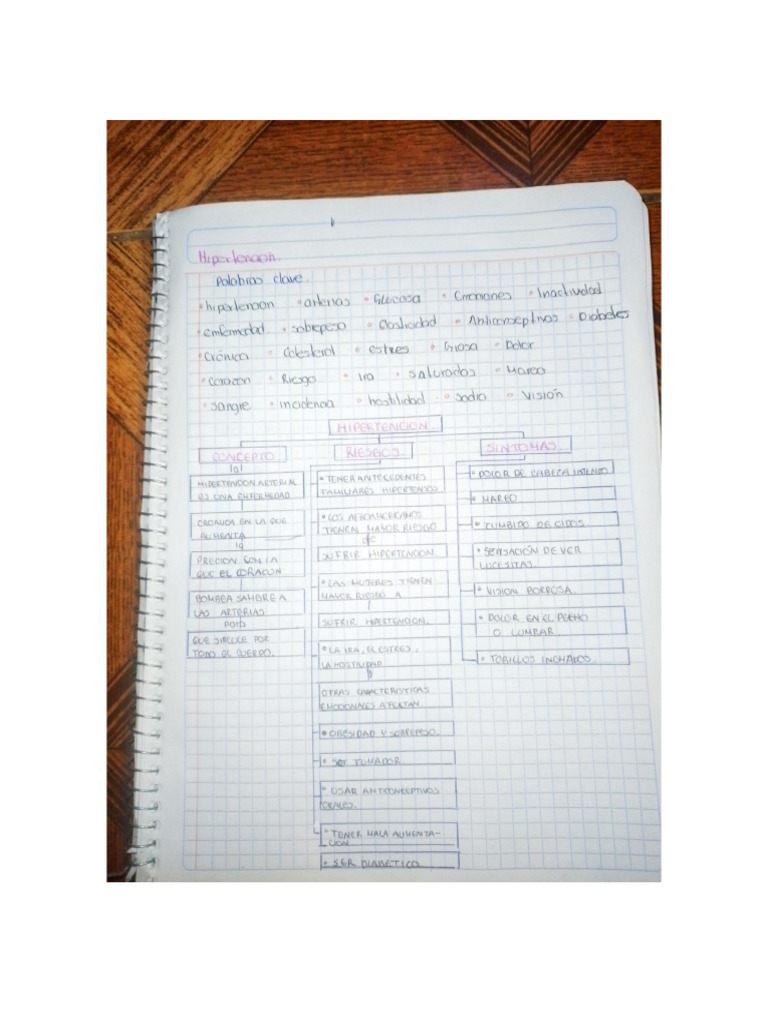 Hipertencion.
Palabras clave.
• hipertencion • arterias • Glucosa • Emociones • Inactividad
• enfermedad • sobrepeso • Elasticidad • Anticonseptivos • Diabetes
• Crónica • Colesterol • estres • Grasa • Dolor
• Corazon • Riesgo • Ira • Saturados • Mareo
• Sangre • incidencia • hostilidad • Sodio • Visión
HIPERTENCION
CONCEPTO RIESGOS SINTOMAS
la
HIPERTENCION ARTERIAL
ES UNA ENFERMEDAD
CRONICA EN LA QUE
AUMENTA
la
PRECION CON LA
QUE EL CORACON
BOMBEA SANGRE A
LAS ARTERIAS
para
QUE CIRCULE POR
TODO EL CUERPO.
• TENER ANTECEDENTES
FAMILIARES HIPERTENSOS
• LOS AFROAMERICANOS
TIENEN MAYOR RIESGO
de
SUFRIR HIPERTENCION
• LAS MUJERES TIENEN
MAYOR RIESGO A
SUFRIR HIPERTENCION.
• LA IRA, EL ESTRES,
LA HOSTILIDAD
OTRAS CARACTERISTICAS
EMOCIONALES AFECTAN.
• OBESIDAD Y SOBREPESO.
• SER FUMADOR
• USAR ANTICONCEPTIVOS
ORALES.
• TENER MALA ALIMENTA-
CION
• SER DIABETICO
• DOLOR DE CABECA INTENSO
• MAREO
• ZUMBIDO DE OIDOS
• SENSACIÓN DE VER
LUCESITAS.
• VISION BORROSA.
• DOLOR EN EL PECHO
O LUMBAR
• TOBILLOS INCHADOS.